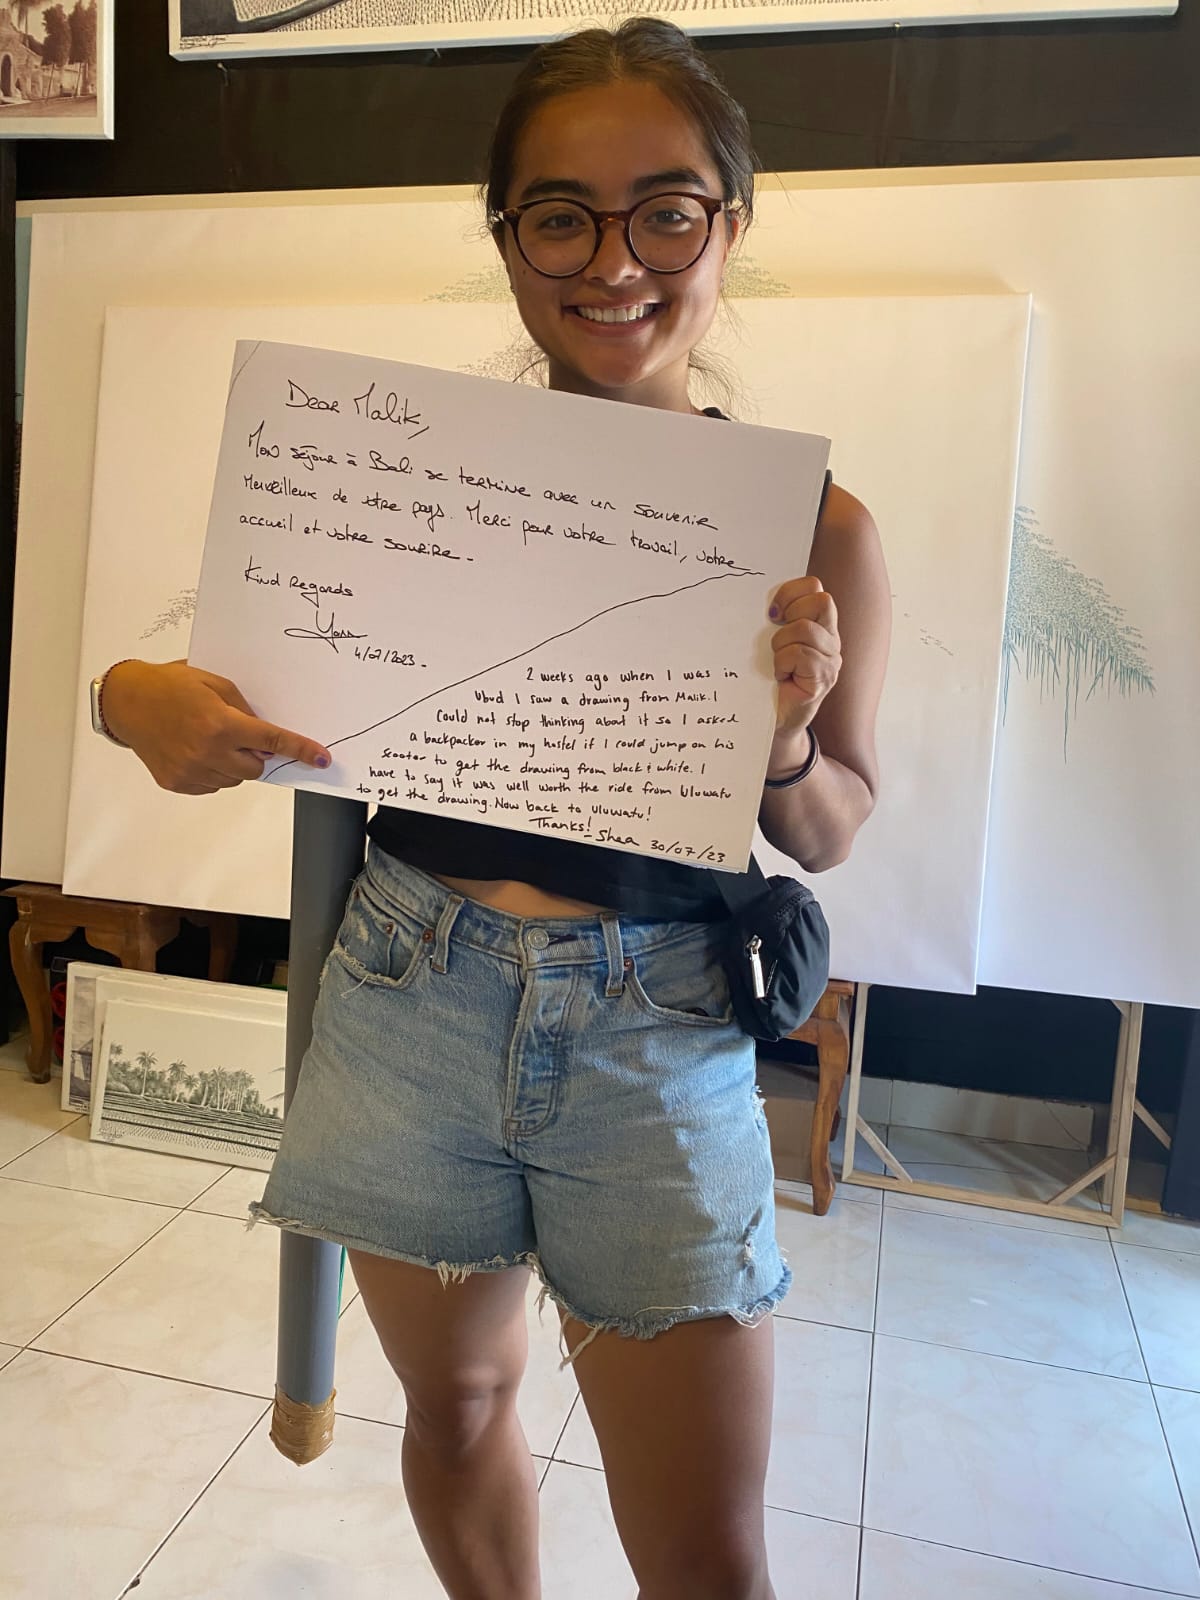 Dear Malik,
Mon séjour à Bali se termine avec un souvenir
merveilleux de votre pays. Merci pour votre travail, votre
accueil et votre sourire.
Kind Regards
4/07/2023.
2 weeks ago when I was in
Ubud I saw a drawing from Malik. I
Could not stop thinking about it so I asked
a backpacker in my hostel if I could jump on his
scooter to get the drawing from black & white. I
have to say it was well worth the ride from Uluwatu
to get the drawing. Now back to Uluwatu!
Thanks! - Shea 30/07/23